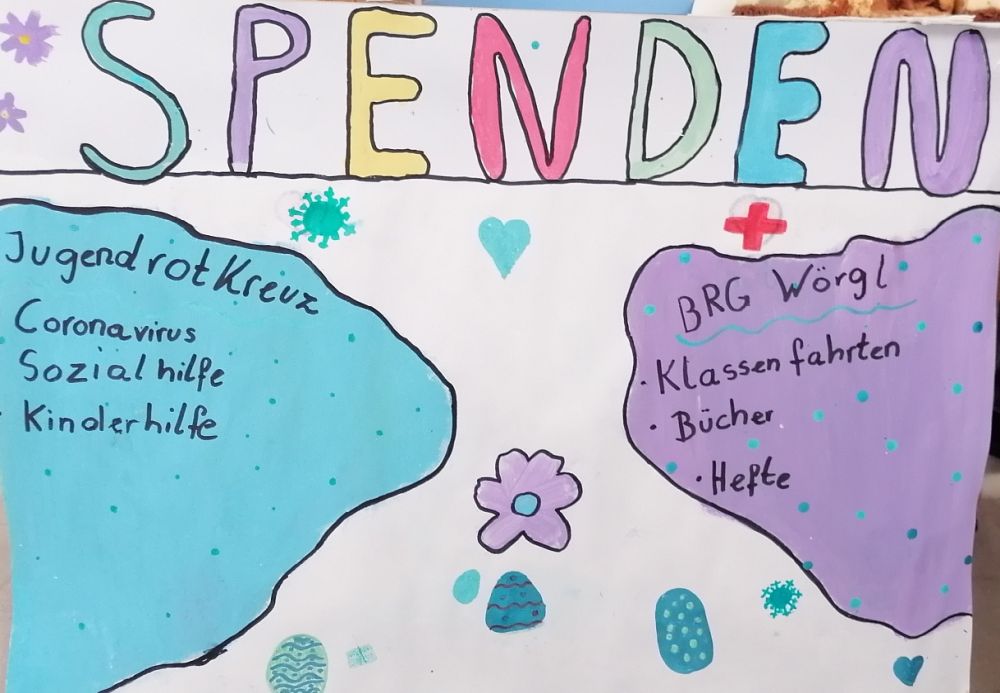 SPENDEN
Jugendrotkreuz
Coronavirus
Sozialhilfe
· Kinderhilfe
BRG Wörgl
· Klassenfahrten
· Bücher
· Hefte